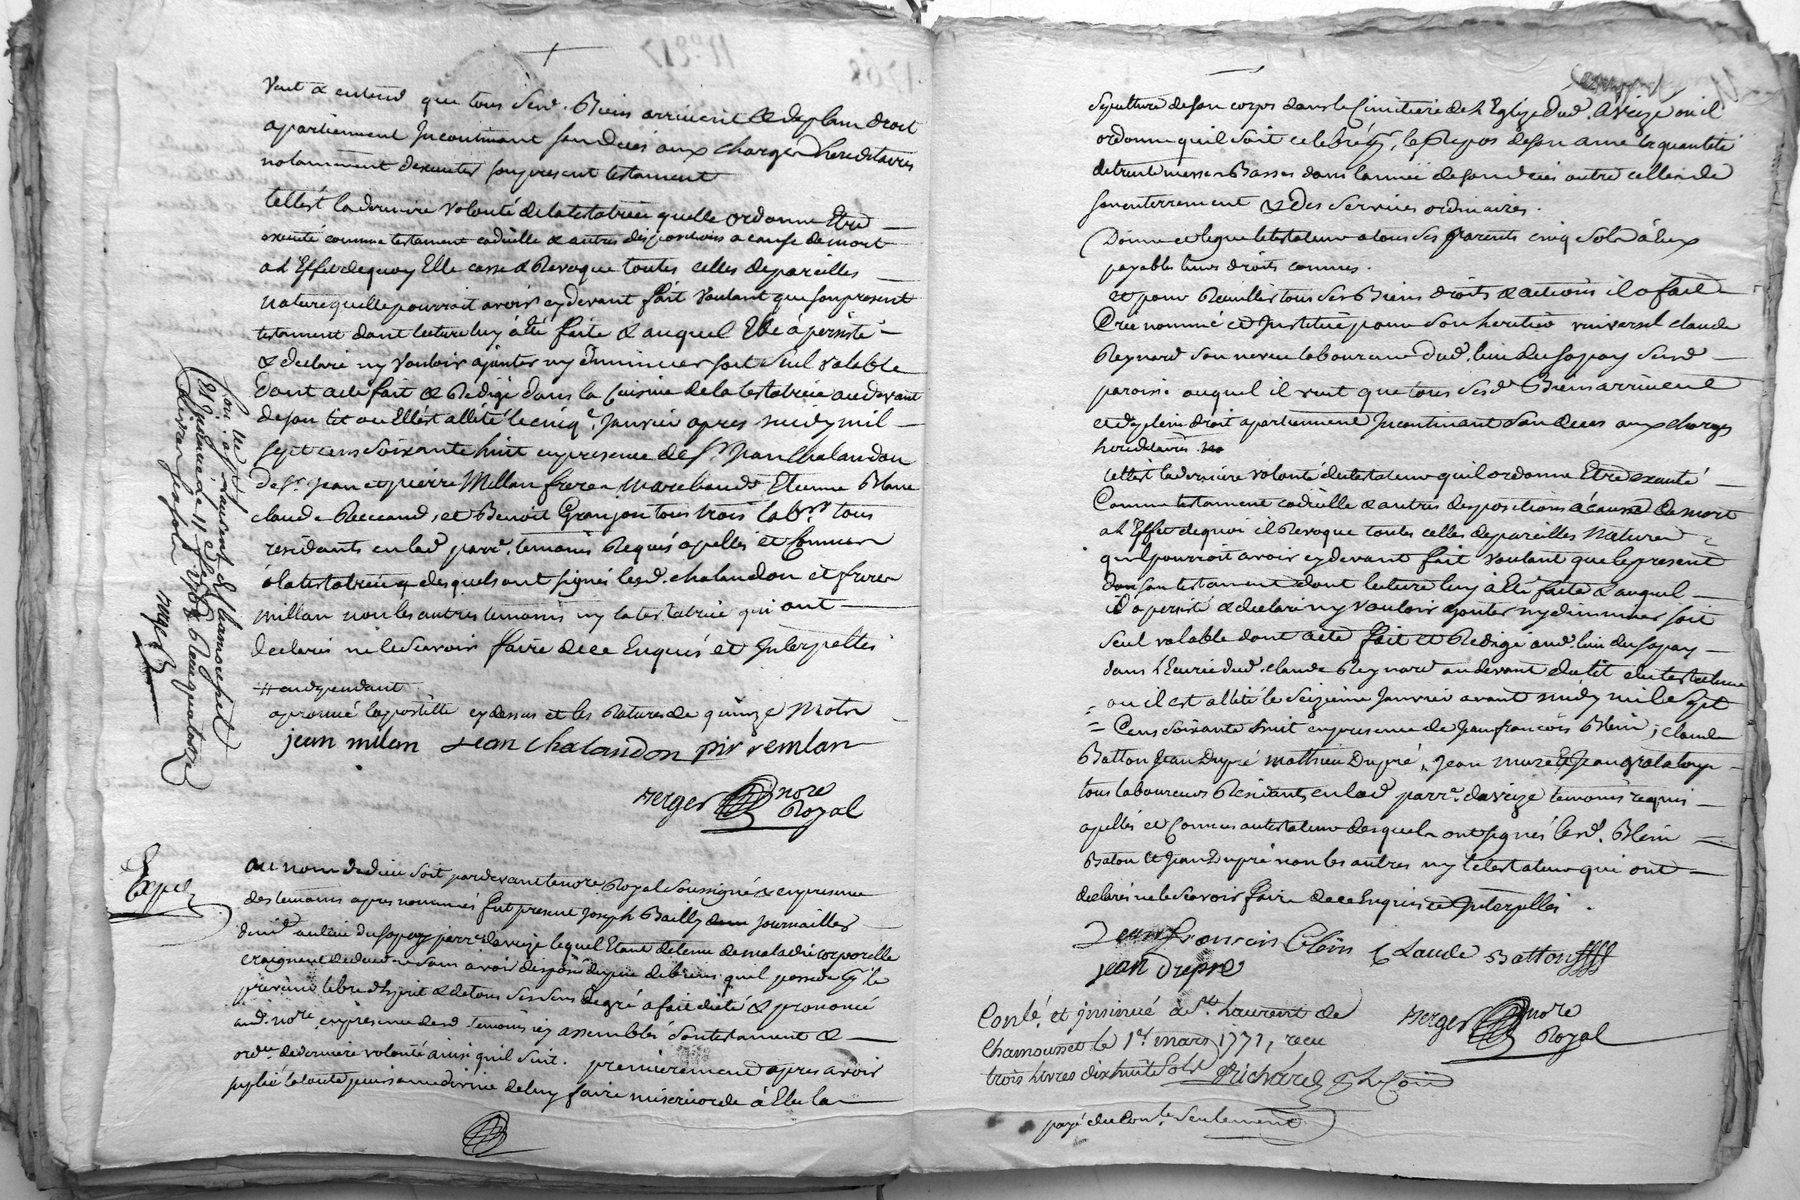 veut & entend que tous sesd. Biens arrivent & de plain droit
apartiennent Incontinant son deces aux charges hereditaires
notamment dexecuter son present testament
telle est la derniere volonté de la testatrice quelle ordonne Etre
executé comme testament codicille & autres dispositions a cause de mort
a L'Effet de quoy Elle casse & Revoque toutes celles de pareilles
nature quelle pourroit avoir cy devant fait voulant que son present
testament dont lecture luy à été faite & auquel Elle à persisté
& declaré ny vouloir ajouter ny diminuer soit seul valable
Dont acte fait & Redigé dans la Cuisine de la testatrice au devant
de son lit ou Elle est allité le cinq Janvier apres midy mil
sept cens soixante huit en presence de Sr. Jean Chalandon
de Sr. Jean et pierre Millan freres Marchands Etienne Blanc
claude et Benoit Granjon tous trois labrs. tous
residants en lad. parr. temoins Requis apellés et Connus
à la testatrice desquels ont signés lesd. chalandon et freres
millan non les autres temoins ny la testatrice qui ont
declarés ne le scavoir faire de ce Enquis et Interpellés
# cy dependant
aprouvé la postille cy dessus et les Ratures de quinze mots
jean milan jean chalandon pir remlan
Berger nore
Royal
a St. Laurent de Chamousset
1768 Reçu quatorze
Exped.
au nom de dieu soit pardevant le nore. Royal soussigné & en presence
des temoins apres nommés fut present Joseph Bailly journaillier
demt. au lieu du sapay parr. daveize lequel Etant detenu de maladie corporelle
craignant de deceder sans avoir disposé du peu de biens quil possede
libre d'Esprit & de tous ses sens de gré a fait dicté & prononcé
aud. nore. en presence desd. temoins icy assemblés son testament &
ordce. de derniere volonté ainsi quil suit. premierement apres avoir
suplié la toute puissance divine de luy faire misericorde à Elu la
sepulture de son corps dans le Cimitiere de L'Eglize dud. aveize ou il
ordonne quil soit celebré pr. le Repos de son ame la quantité
de trente messes Basses dans lannée de son deces outre celles de
son enterrement & des services ordinaires.
Donne et legue le testateur a tous ses parents cinq sols à Eux
payables leurs droits connus.
et pour Recuillir tous ses Biens droits & actions il a fait
Créé nommé et Institué pour son heritier universel claude
Reynard son neveu laboureur dud. lieu du sapay susd.
paroisse auquel il veut que tous sesd. Biens arrivent
et de plein droit apartiennent Incontinant son deces aux charges
hereditaires
telle est la derniere volonté du testateur quil ordonne Etre executé
Comme testament codicille & autres dispositions à cause de mort
a L'Effet de quoi il Revoque toutes celles de pareilles Natures
quil pourroit avoir cy devant fait voulant que le present
son testament dont lecture luy à Eté faite & auquel
il a persisté & declaré ny vouloir ajouter ny diminuer soit
seul valable dont acte fait et Redigé aud. lieu du sapay
dans L'Ecurie dud. claude Reynard au devant du lit du testateur
ou il est allité le seizieme Janvier avant midy mil sept
Cens soixante huit en presence de Jean françois Bloin, claude
Batton Jean Dupré mathieu Dupré, Jean
tous laboureurs Residants en lad. parr. daveize temoins requis
apellés et Connus au testateur desquels ont signés lesd. Bloin
Baton et Jean Dupré non les autres ny le testateur qui ont
declarés ne le Scavoir faire de ce Enquis et Interpellés.
Jean francois Bloin Claude Batton
jean dupré
Berger nore
Royal
Conlé. et insinué à St. Laurent de
Chamousset le 1er. mars 1771, recu
trois livres dix huit sols
payé du Conle. Seulement